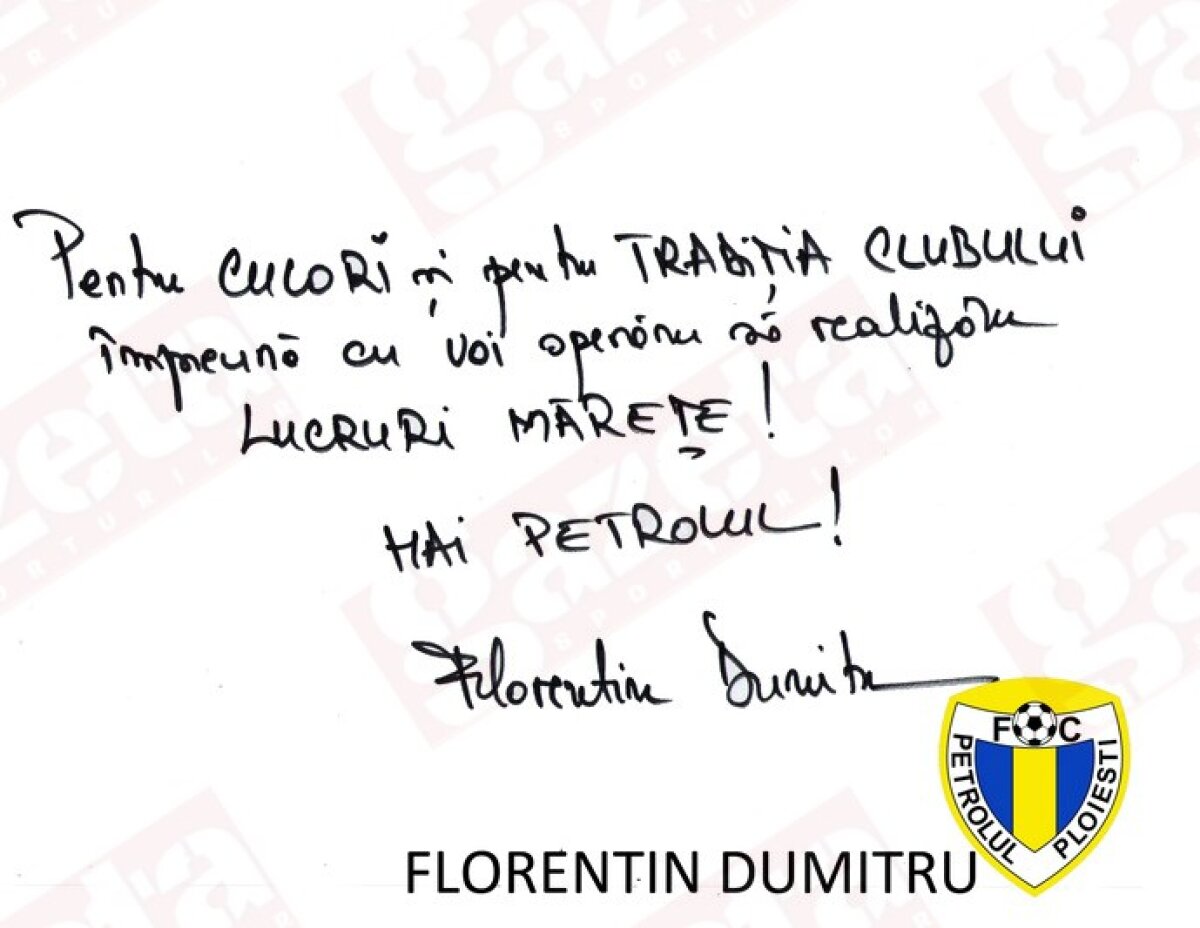 Pentru CULORI și pentru TRADIȚIA CLUBULUI
împreună cu voi sperăm să realizăm
LUCRURI MĂREȚE!
HAI PETROLUL!
Florentin Dumitru
F C
PETROLUL PLOIESTI
FLORENTIN DUMITRU
gazeta
SPORTURILOR